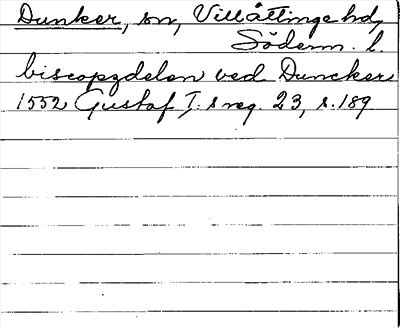 Dunker, sn, Villåttinge hd,
Söderm. l.
biscopzdelen ved Dunckers
1552 Gustaf I:s reg. 23, s. 189